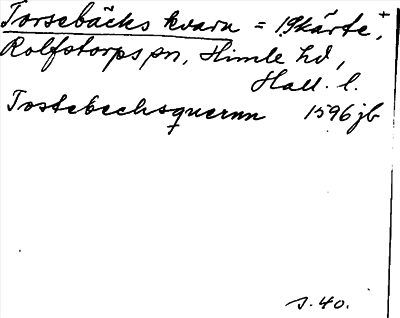 Torsebäcks kvarn = 19 kärte, +
Rolfstorps sn, Himle hd,
Hall. l.
Tostebechsquernn 1596 jb
s. 40.